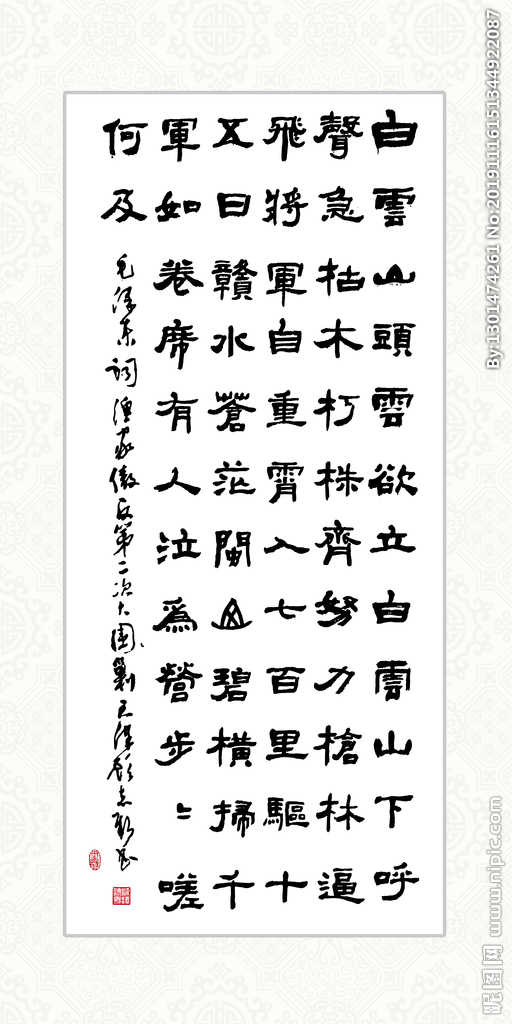 白雲山頭雲欲立白雲山下呼
聲急枯木朽株齊努力槍林逼
飛將軍自重霄入七百里驅十
五日贛水蒼茫閩山碧橫掃千
軍如卷席有人泣爲營步〻嗟
何及
毛澤東詞漁家傲反第二次大圍剿
By:1301474261 No:20191116151344922087
昵图网 www.nipic.com